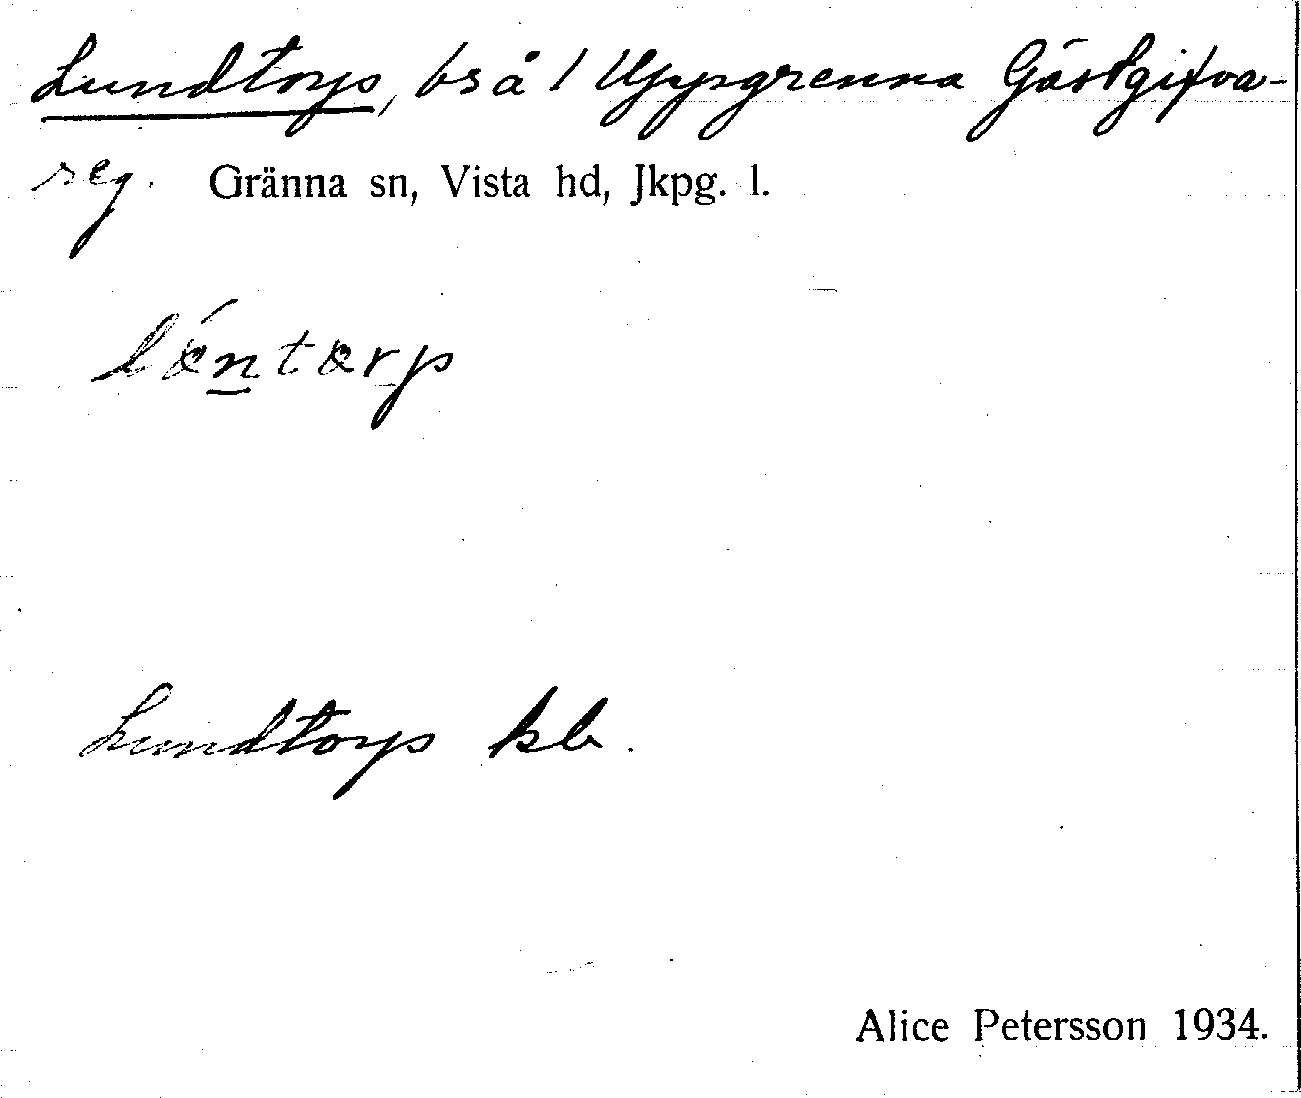 Lundtorp, bs å 1 Uppgrenna Gästgifva-
reg. Gränna sn, Vista hd, Jkpg. l.
lǿntørp
Lundtorp kb.
Alice Petersson 1934.